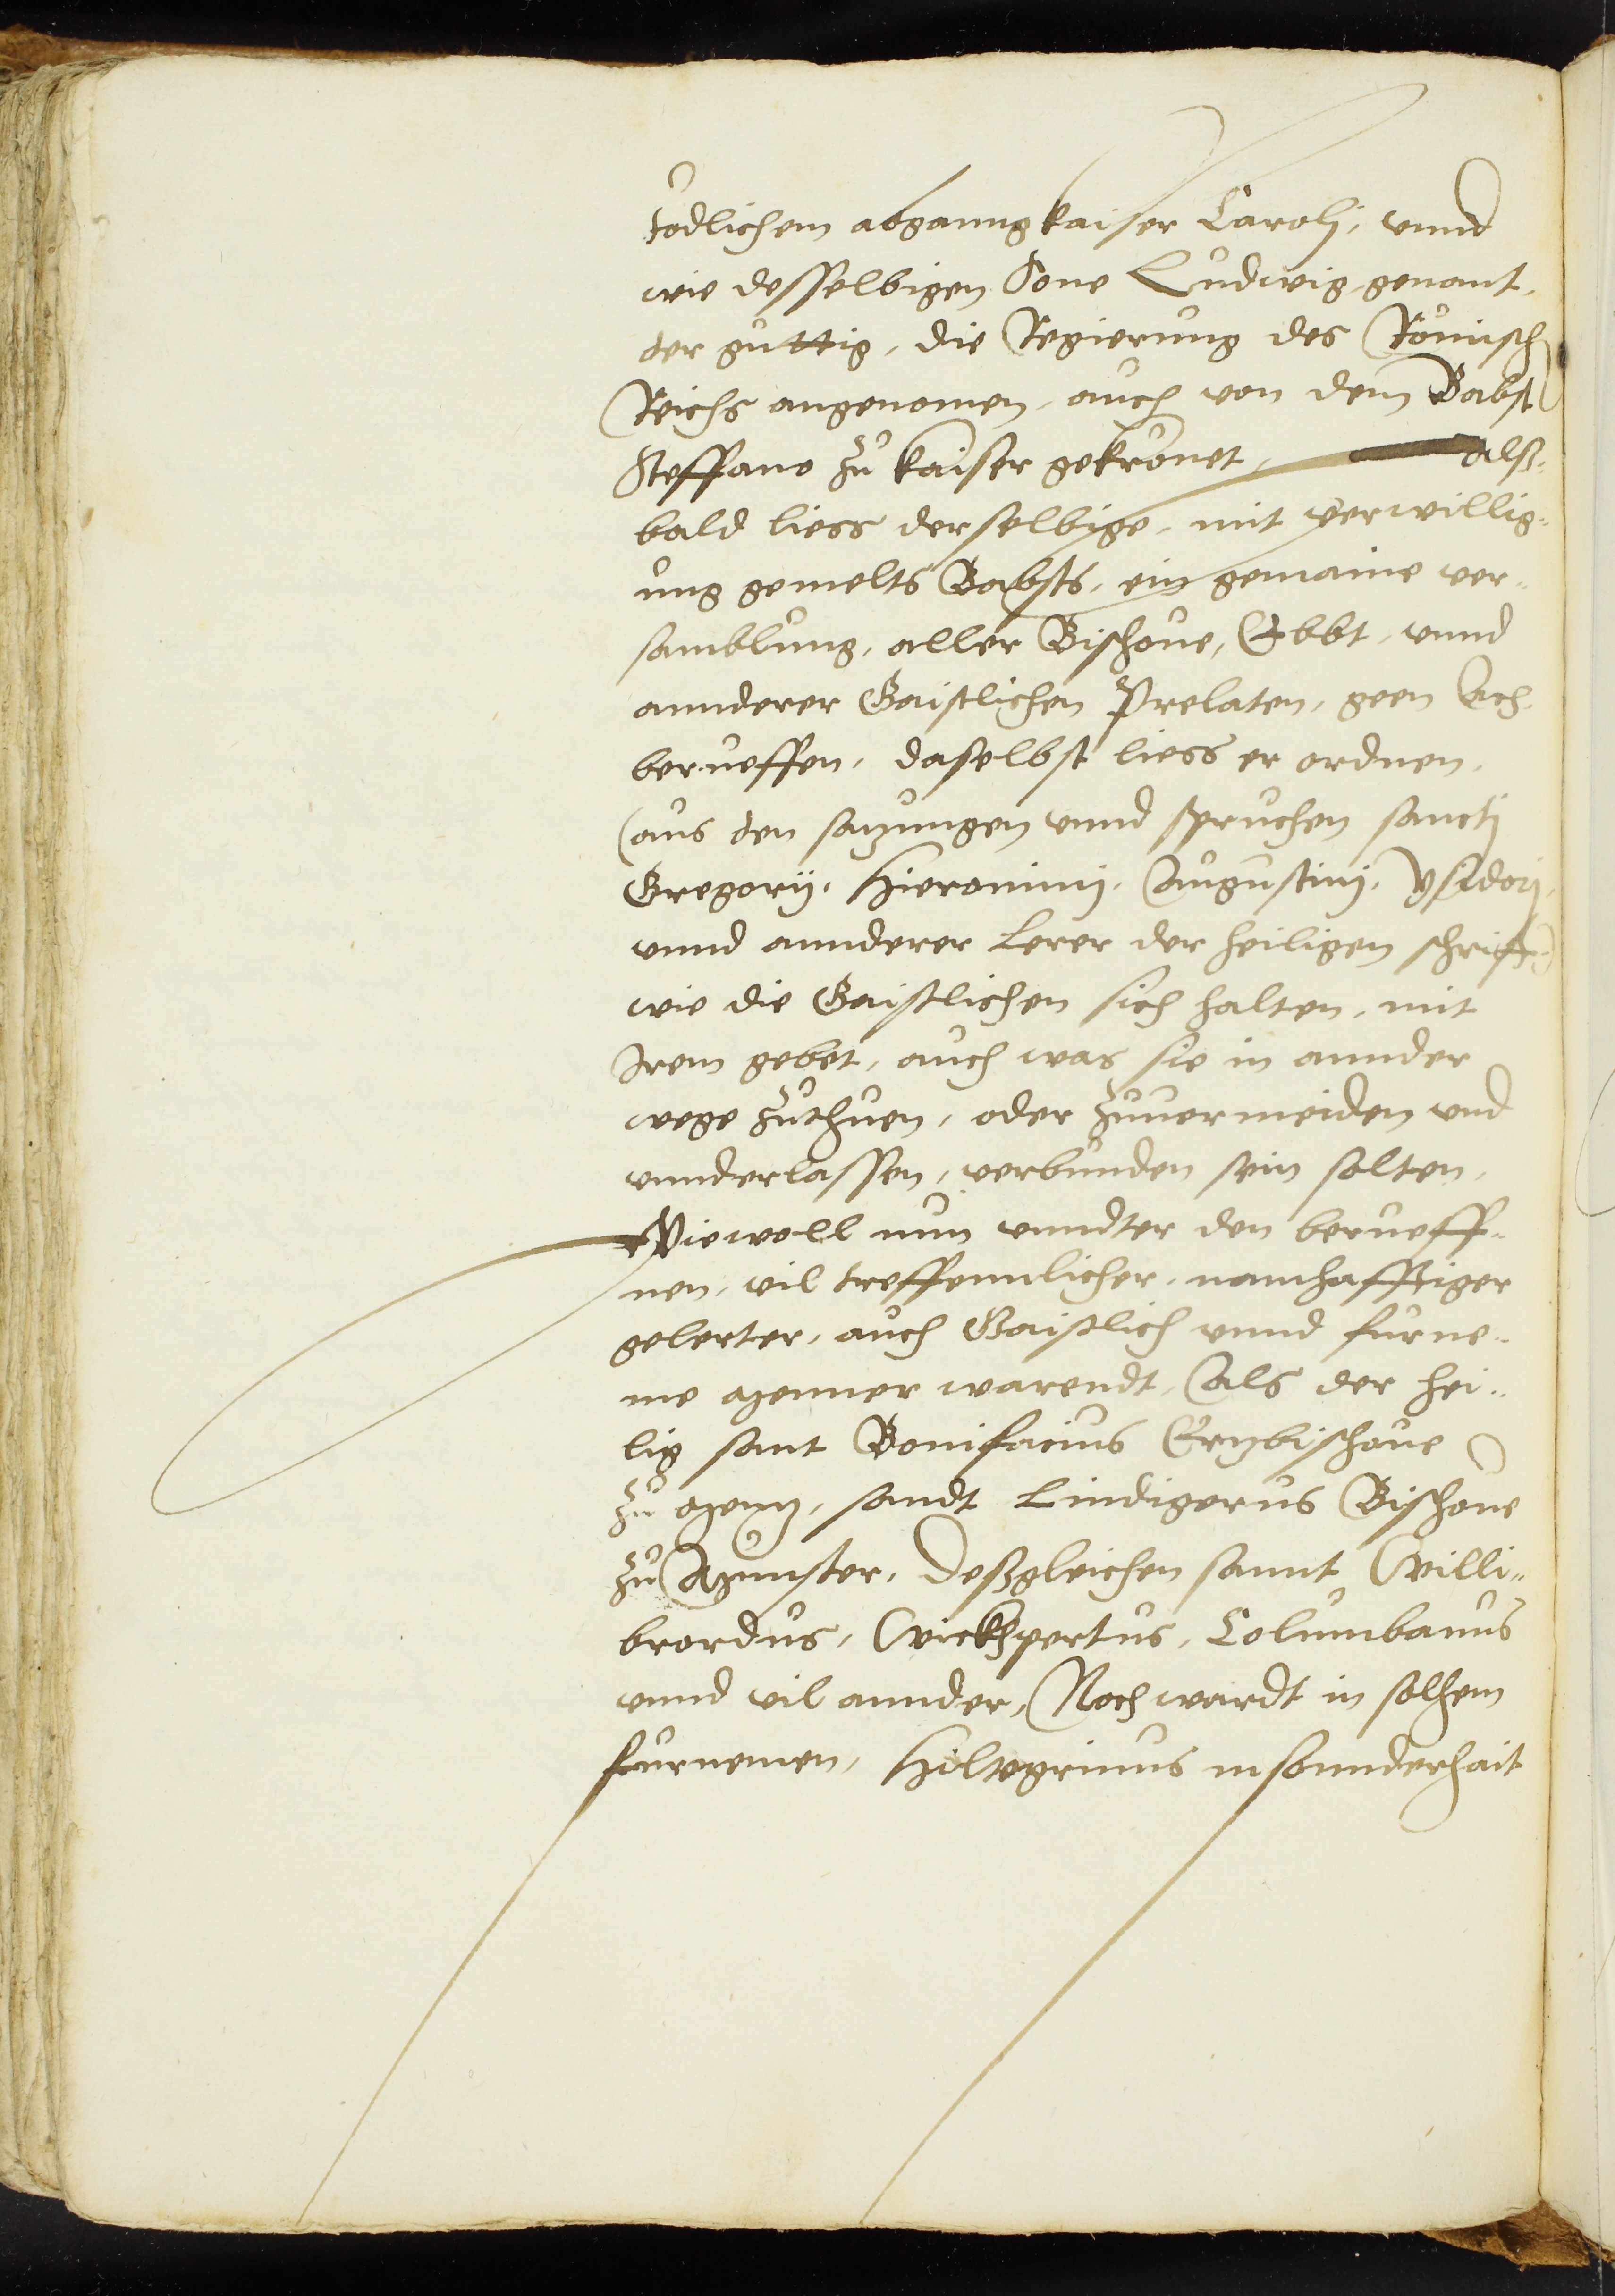 todlichem abganng kaiser Carolj, vnnd
wie desselbigen Sone Ludwig, genant,
der guttig, die Regierung des Römisch
Reichs angenomen, auch von dem Babst
Steffano zu kaiser gekrönet, alß-
bald liess derselbige, mit verwillig-
ung gemelts Babsts, ein gemaine ver-
samblung, aller Bischoue, Ebbt, vnnd
annderer Gaistlichen Prelaten, geen Ach
berueffen, daselbst liess er ordnen,
(aus den satzungen vnnd spruchen sancti
Gregorij, Hieronimj, Augustinj, Ysidorj,
vnnd annderer Lerer der heiligen schrifft)
wie die Gaistlichen sich halten, mit
Irem gebet, auch was sie in annder
wege zuthuen, oder zuuermeiden vnd
vnnderlassen, verbunden sein solten,
Wiewoll nun vnndter den berueff-
nen, vil treffennlicher, namhafftiger
gelerter, auch Gaistlich vnnd furne-
me Menner warendt, Als der hei-
lig sant Bonifacius Ertzbischoue
zu Mentz, sandt Lindigerus Bischoue
zu Munster, deßgleichen sannt Willi-
brordus, Wickhpertus, Columbanus
vnnd vil annder, Noch wardt in solhem
furnemen, Hiltegrinus insonnderhait